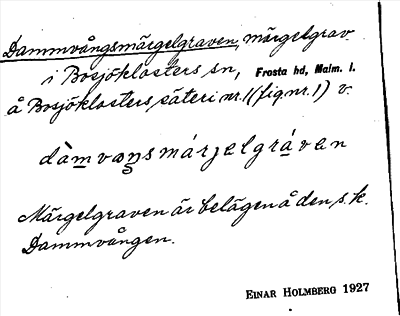 Dammvångsmärgelgraven, märgelgrav
i Bosjöklosters sn, Frosta hd, Malm. l.
å Bosjöklosters säteri nr. 1 (fig. nr. 1) v.
Märgelgraven är belägen å den s. k.
Dammvången.
EINAR HOLMBERG 1927